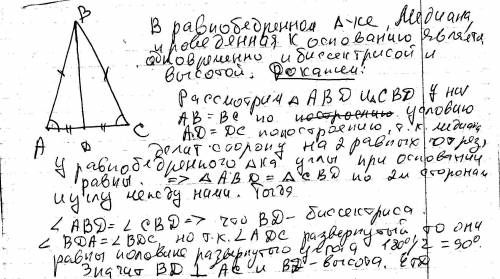 B
A
D
C
В равнобедренном Δ-ке, Медиана,
проведенная к основанию является
одновременно и биссектрисой и
высотой. Докажем:
Рассмотрим Δ ABD и Δ CBD у них
AB = BC по построению условию
AD = DC по построению, т.к. медиана
делит сторону на 2 равных отрез,
У равнобедренного Δка углы при основании
равны. => Δ ABD = Δ CBD по 2м сторонам
и углу между ними. Тогда
∠ ABD = ∠ CBD => что BD - биссектриса.
∠ BDA = ∠ BDC но т.к. ∠ ADC развернутый то они
равны половине развернутого угла 180°/2 = 90°.
Значит BD ⊥ AC и BD - высота.